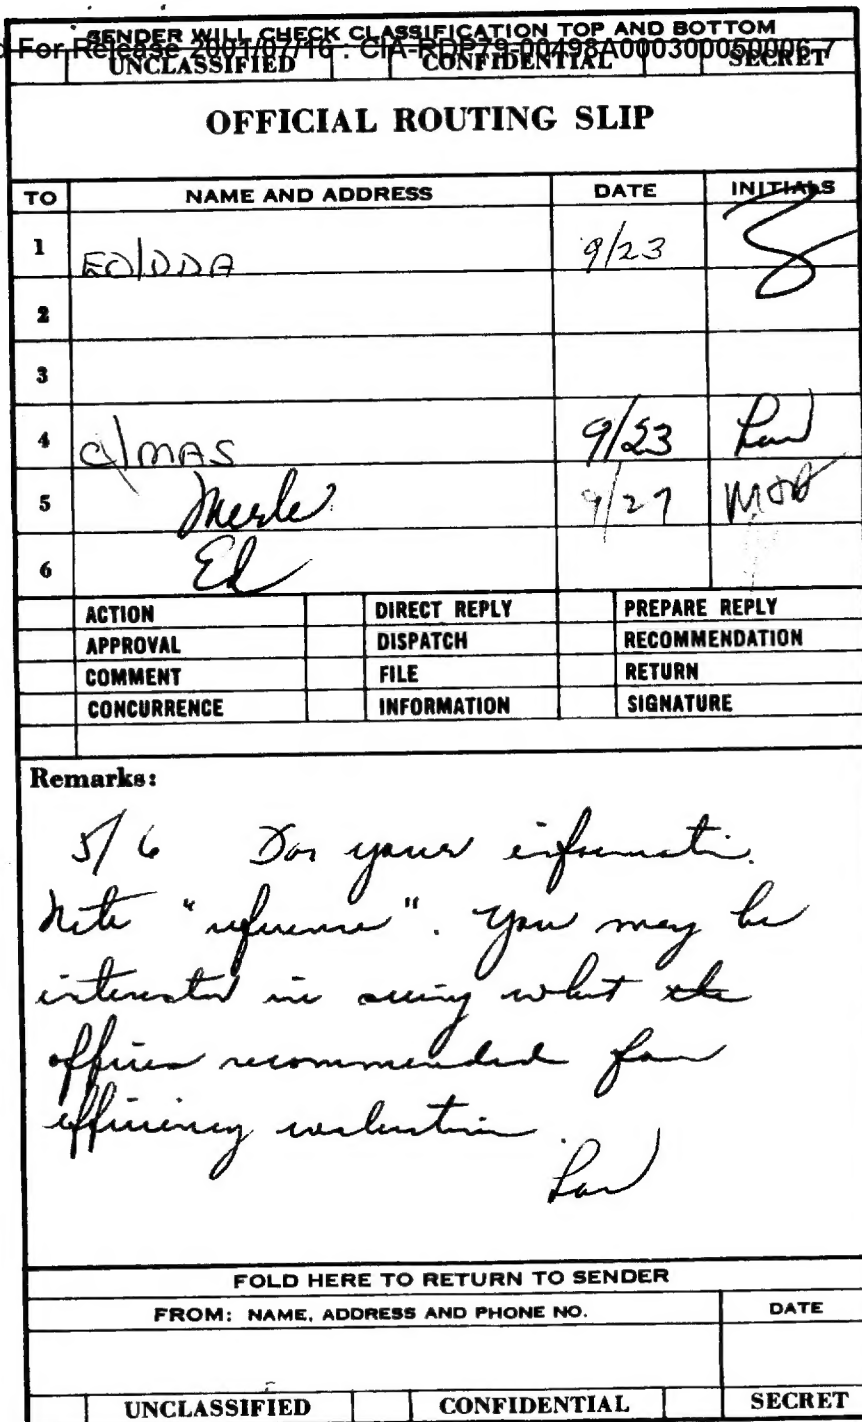 SENDER WILL CHECK CLASSIFICATION TOP AND BOTTOM
For Release 2001/07/16 : CIA-RDP79-00498A000300050006-7
UNCLASSIFIED CONFIDENTIAL SECRET
OFFICIAL ROUTING SLIP
TO NAME AND ADDRESS DATE INITIALS
1 EO/DDA 9/23
2
3
4 C/MAS 9/23
5 Merle 9/27
6 Ed
ACTION DIRECT REPLY PREPARE REPLY
APPROVAL DISPATCH RECOMMENDATION
COMMENT FILE RETURN
CONCURRENCE INFORMATION SIGNATURE
Remarks:
5/6 For your information.
Note "reference". You may be
interested in seeing what the
offices recommended for
efficiency evaluation.
FOLD HERE TO RETURN TO SENDER
FROM: NAME, ADDRESS AND PHONE NO. DATE
UNCLASSIFIED CONFIDENTIAL SECRET